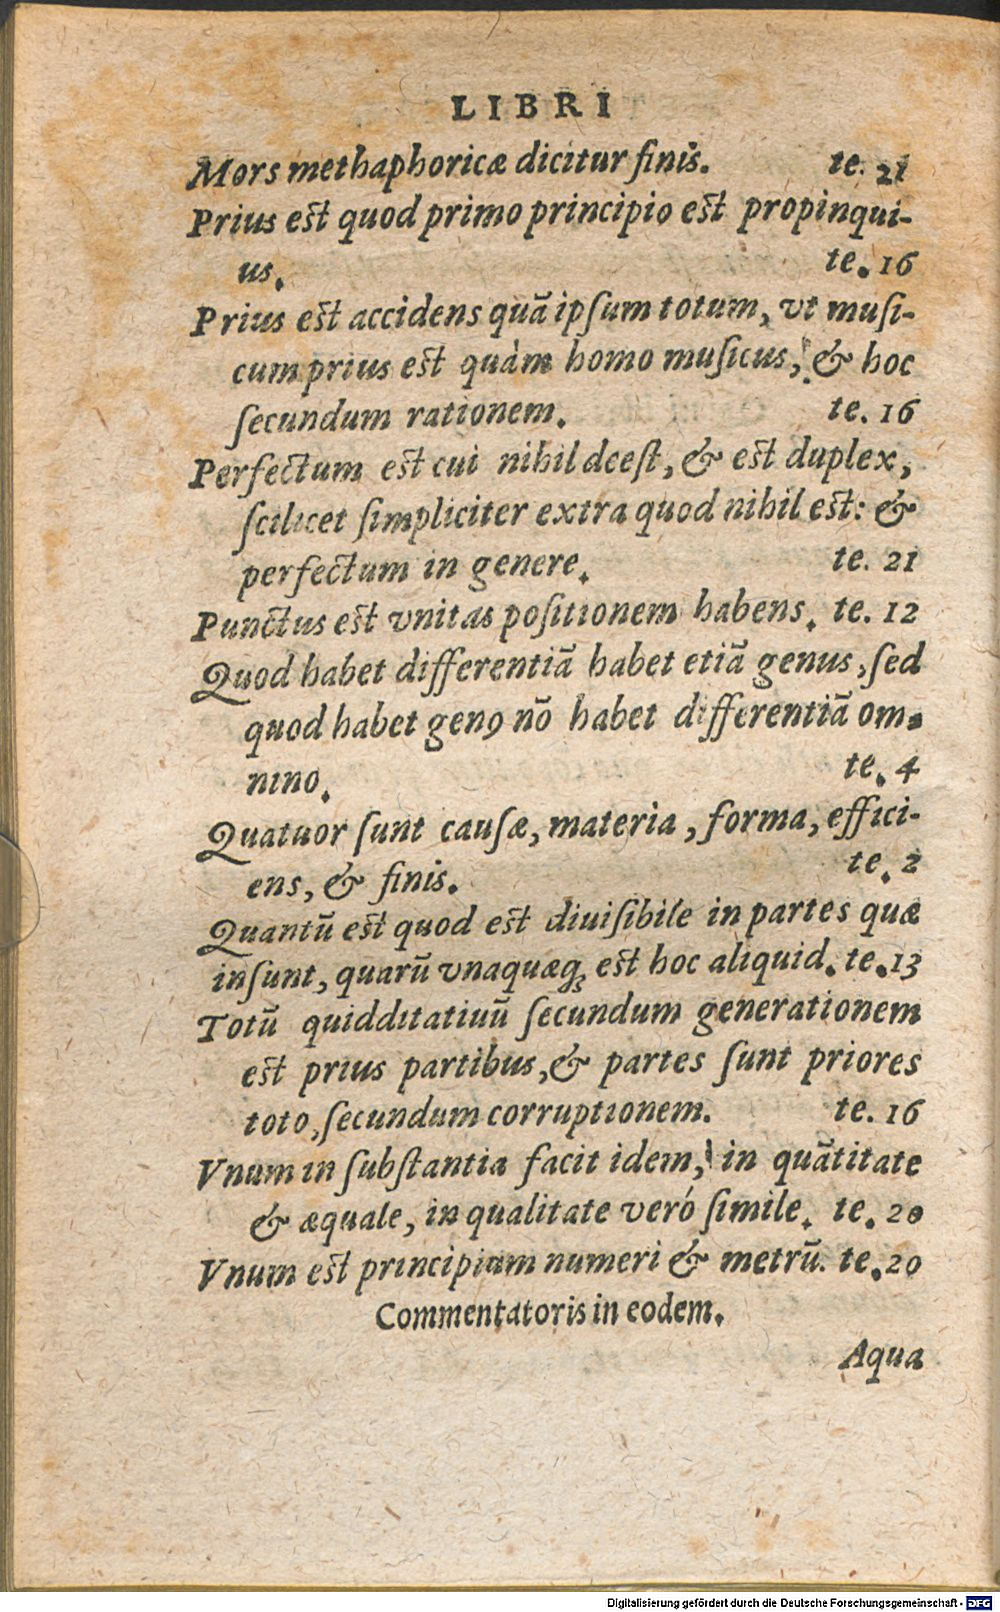 LIBRI
Mors methaphoricæ dicitur finis. te. 21
Prius est quod primo principio est propinqui-
us. te. 16
Prius est accidens quã ipſum totum, vt muſi-
cum prius est quàm homo muſicus, & hoc
ſecundum rationem. te. 16
Perfectum est cui nihil dceſt, & est duplex,
ſcilicet ſimpliciter extra quod nihil est: &
perfectum in genere. te. 21
Punctus est vnitas poſitionem habens. te. 12
Quod habet differentiã habet etiã genus, ſed
quod habet genꝰ nõ habet differentiã om-
nino. te. 4
Quatuor ſunt cauſæ, materia, forma, effici-
ens, & finis. te. 2
Quantũ est quod est diuiſibile in partes quæ
inſunt, quarũ vnaquæq; est hoc aliquid. te. 13
Totũ quidditatiuũ ſecundum generationem
est prius partibus, & partes ſunt priores
toto, ſecundum corruptionem. te. 16
Vnum in ſubſtantia facit idem, in quãtitate
& æquale, in qualitate veró ſimile. te. 20
Vnum est principium numeri & metrũ. te. 20
Commentatoris in eodem.
Aqua
Digitalisierung gefördert durch die Deutsche Forschungsgemeinschaft - DFG